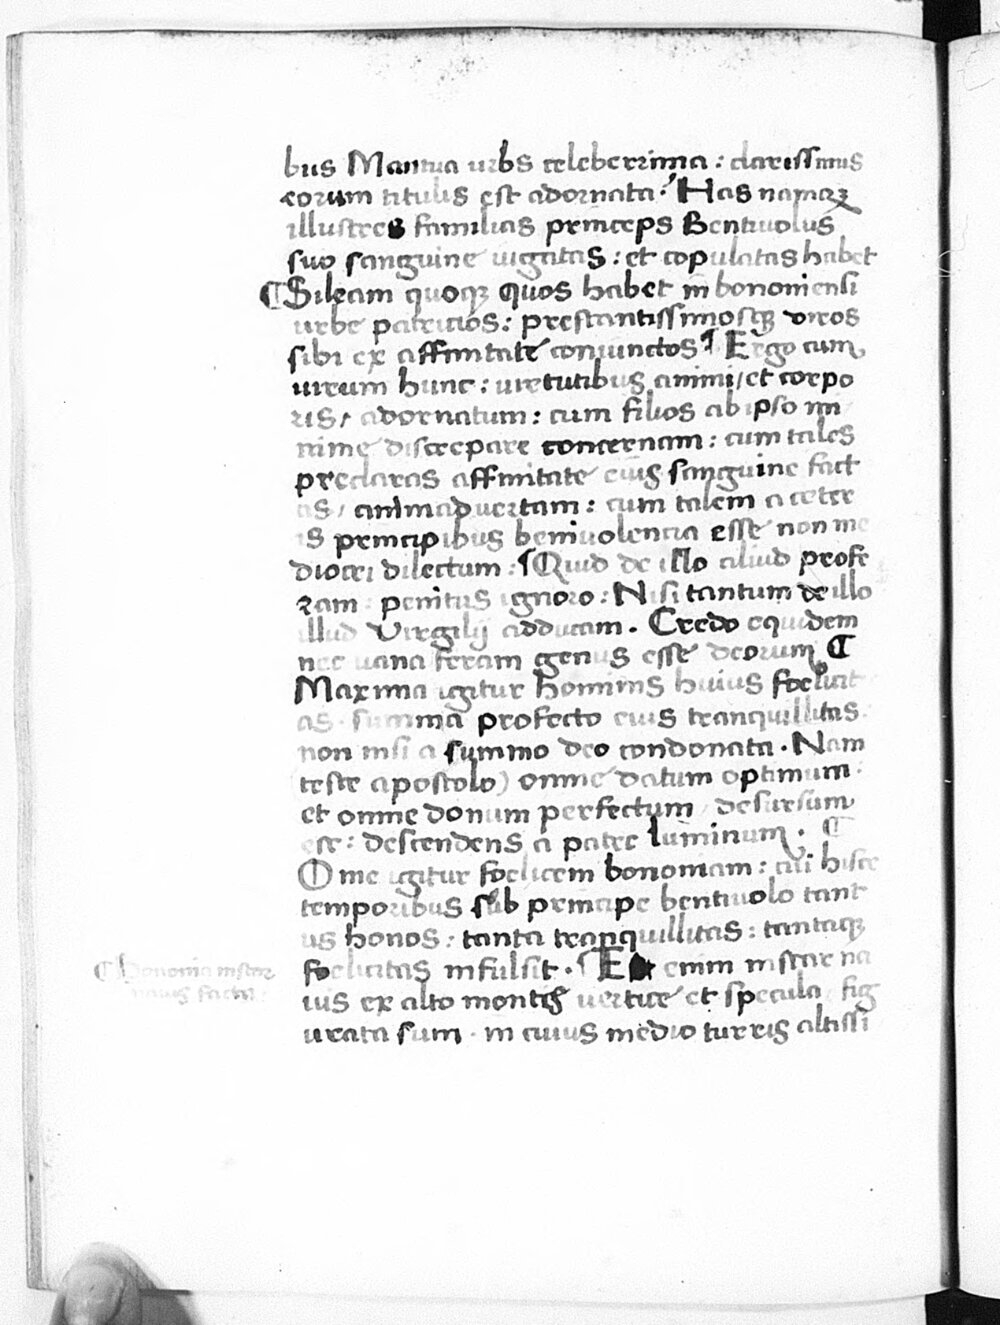 bus Mantua urbs celeberrima : clarissimis
eorum titulis est adornata. Has namqꝫ
illustres familias princeps Bentiuolus
suo sanguine uigatas : et copulatas habet
¶ Sileam quoqꝫ quos habet in bononiensi
urbe patritios : prestantissimosqꝫ viros
sibi ex affinitate coniunctos ¶ Ergo cum
uirum hunc : uirtutibus animi / et corpo
ris / adornatum : cum filios ab ipso mi
nime discrepare concernam : cum tales
preclaras affinitate eius sanguine fact
as / animaduertam : cum talem a ceter
is principibus beniuolencia esse non me
diocri dilectum : ¶ Quid de illo aliud profe
ram : penitus ignoro : Nisi tantum de illo
illud Virgilij adducam . Credo equidem
nec uana feram genus esse deorum ¶
Maxima igitur hominis huius foelicit
as . summa profecto eius tranquillitas .
non nisi a summo deo condonata . Nam
(teste apostolo) omne datum optimum .
et omne donum perfectum / desursum
est : descendens a patre luminum . ¶
O me igitur foelicem bononiam : cui hisce
temporibus sub principe bentiuolo tant
us honos : tanta tranquillitas : tantaqꝫ
foelicitas infulsit . ¶ E enim instar na
uis ex alto montis uertice et specula fig
urata sum . in cuius medio turris altissi
¶ Bononia instar
nauis facta :